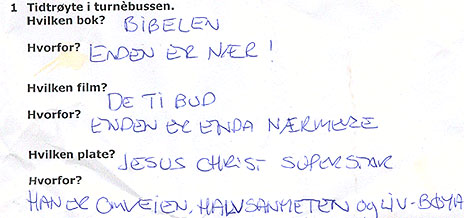 1 Tidtrøyte i turnèbussen.
Hvilken bok? BIBELEN
Hvorfor? ENDEN ER NÆR!
Hvilken film? DE TI BUD
Hvorfor? ENDEN ER ENDA NÆRMERE
Hvilken plate? JESUS CHRIST SUPERSTAR
Hvorfor?
HAN ER OMVEIEN, HALVSANHETEN og LIV-BØYA